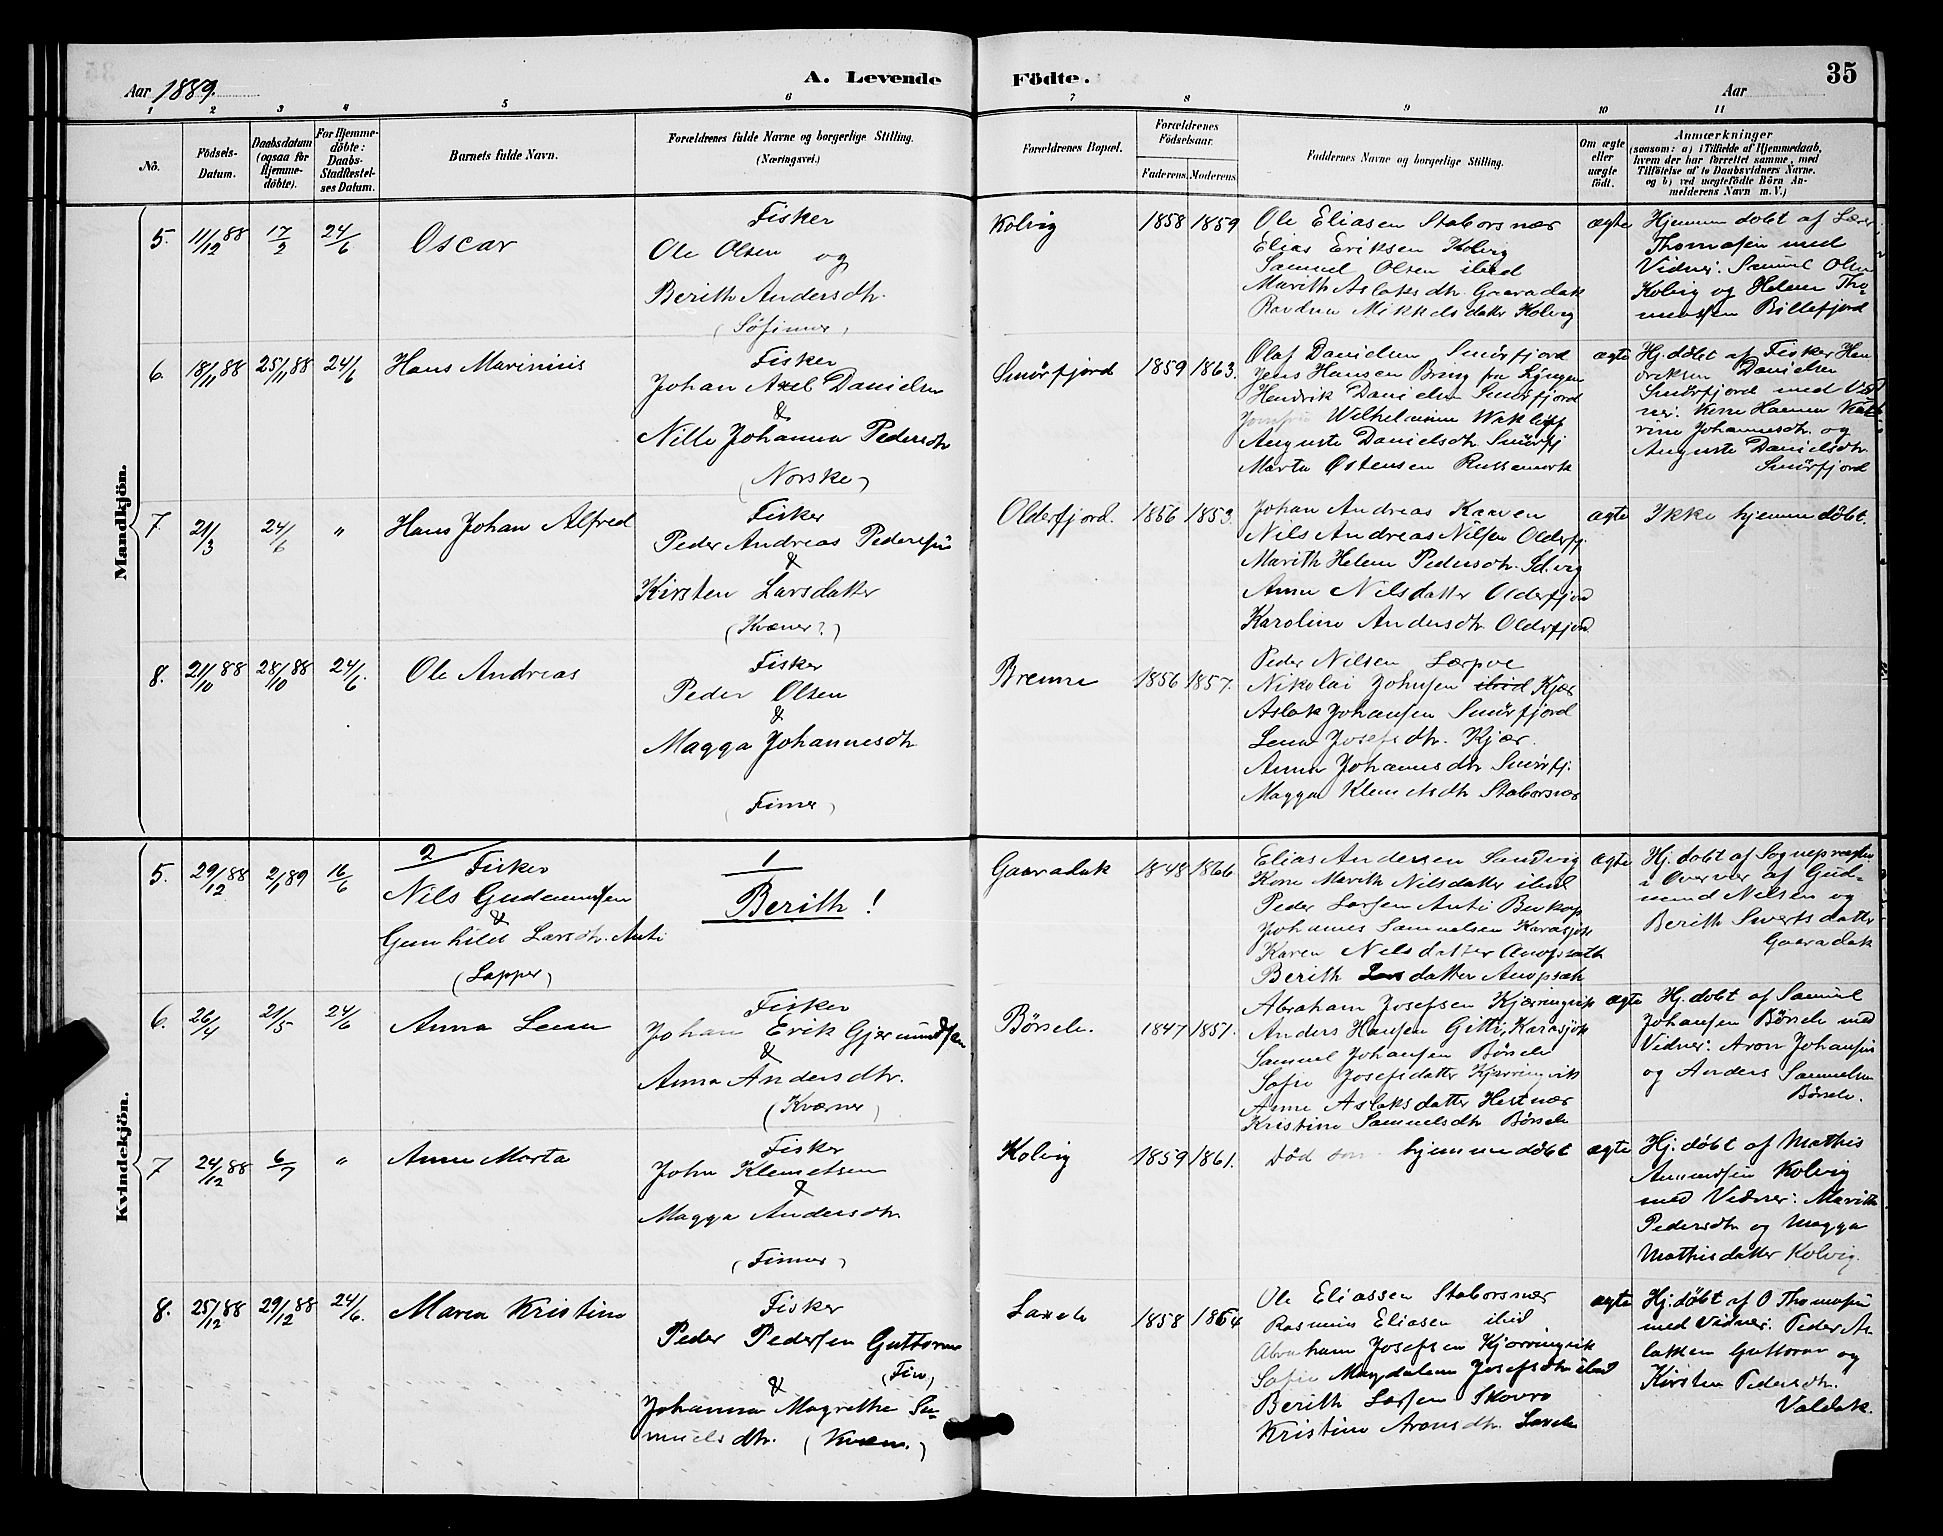 Aar 1889.
A. Levende
Födte.
35
Aar
1 2 3 4 5 6 7 8 9 10 11
No.
Födsels-Datum.
Daabsdatum (ogsaa for Hjemme-döbte).
For Hjemme-döbte: Daabs-Stadfæstel-ses Datum.
Barnets fulde Navn.
Forældrenes fulde Navne og borgerlige Stilling. (Næringsvei.)
Forældrenes Bopæl.
Forældrenes Födselsaar.
Faderens.
Moderens.
Faddernes Navne og borgerlige Stilling.
Om ægte eller uægte födt.
Anmærkninger
(saasom: a) i Tilfælde af Hjemmedaab,
hvem der har forrettet samme, med
Tilföielse af to Daabsvidners Navne,
og b) ved uægtefödte Börn An-
melderens Navn m. V.)
Mandkjön.
5. 11/12 88 17/2 24/6 Oscar
Fisker
Ole Olsen og
Berith Andersdtr.
(Söfinner)
Kolvig 1858 1859
Ole Eliasen Staborsnær
Elias Eriksen Kolvig
Samuel Olsen ibid
Marith Aslaksdtr. Gaaradak
Ravdna Mikkelsdatter Kolvig
ægte
Hjemme döbt af Lærer
Thomasen med
Vidner: Samuel Olsen
Kolvig og Helene Tho-
massen Billefjord
6. 18/11 88 25/11 88 24/6 Hans Marinius
Fisker
Johan Axel Danielsen
&
Nille Johanna Pedersdtr
(Norske)
Smörfjord 1859 1863.
Olaf Danielsen Smörfjord
Jens Hansen Bring fra Lyngen
Hendrik Danielsen Smörfjord
Wilhelmine
Auguste Danielsdtr. Smörfj
Marta Østensen Russemark
ægte
Hj. döbt af Fisker Hen
driksen Danielsen
Smörfjord med Vid
ner: Kone Hanna Kat
rine Johannesdtr. og
Auguste Danielsdtr.
Smörfjord
7. 21/3 24/6 " Hans Johan Alfred
Fisker
Peder Andreas Pedersen
&
Kirsten Larsdatter
(Kvæner?)
Olderfjord. 1856 1853.
Johan Andreas Kaaven
Nils Andreas Nilsen Olderfj.
Marith Helene Pedersdtr.
Anne Nilsdatter Olderfjord
Karoline Andersdtr. Olderfjord
ægte
Ikke hjemmedöbt.
8. 21/10 88 28/10 88 24/6. Ole Andreas
Fisker
Peder Olsen
&
Magga Johannesdtr
(Finner)
Brenne 1856 1857.
Peder Nilsen
Nikolai Johnsen ibid Kjær
Aslak Johansen Smörfjord
Lena Josefsdtr. Kjær.
Anna Johannesdtr Smörfj.
Magga Klemetsdtr Staborsnær
Kvindekjön.
5. 29/12 88 2/1 89 16/6
2
Fisker
Nils Gudmundsen
&
Gunhild Larsdtr. Anti
(Lapper)
1
Berith!
Gaaradak 1848 1866
Elias Andersen Sandvig
Kone Marith Nilsdatter ibid
Peder Larsen Anti
Johannes Samuelsen Karasjok
Karen Nilsdatter
Berith Larsdatter
ægte
Hj. döbt af Sogneprästen
i Overvær af Gud-
mund Nilsen og
Berith Sivertsdatter
Gaaradak
6. 26/4 21/5 24/6 Anna Lena
Fisker
Johan Erik Gjermundsen
&
Anna Andersdtr.
(Kvæner)
Börsele. 1847 1851.
Abraham Josefsen Kjærringvik
Anders Hansen Gitti, Karasjok
Samuel Johansen Börsele
Sofie Josefsdatter Kjærringvik
Anne Aslaksdatter Hestnær
Kristine Samuelsdtr Börsele
ægte
Hj. döbt af Samuel
Johansen Börsele med
Vidner: Aron Johansen
og Anders Samuelsen
Börsele.
7 24/12 88 6/7 " Anne Marta
Fisker
John Klemetsen
&
Magga Andersdtr.
(Finner)
Kolvig 1859 1861.
Död som hjemmedöbt
ægte
Hj. döbt af Mathis
Amundsen Kolvig
med Vidner: Marith
Pedersdtr og Magga
Mathisdatter Kolvig.
8. 25/12 88 29/12 88 24/6. Maren Kristine
Fisker
Peder Pedersen Guttorm
(Fin)
&
Johanna Magrethe Sa-
muelsdtr. (Kvæn.)
Laxele 1858 1864
Ole Eliassen Staborsnær
Rasmus Eliasen ibid
Abraham Josefsen Kjærringvik
Sofie Magdalene Josefsdtr ibid
Berith Larsen Skovro
Kristine Aronsdtr. Laxele
ægte
Hj. döbt af O Thomasen
med Vidner: Peder As-
laksen Guttorm og
Kirsten Pedersdtr.
Valdak.